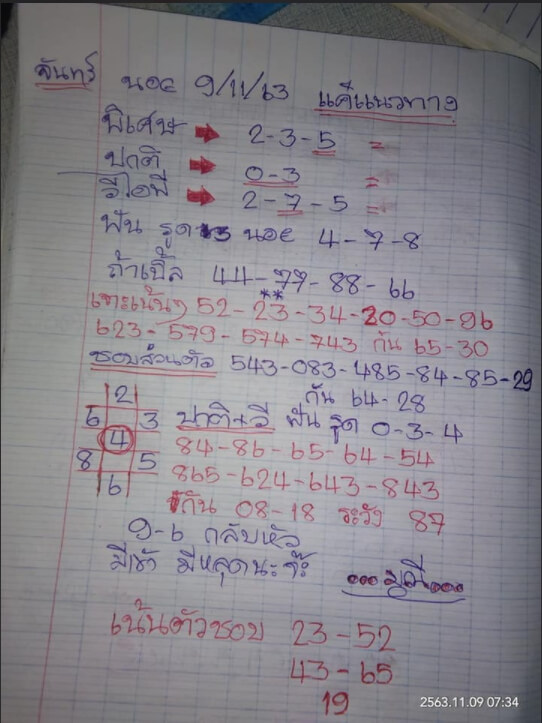 จันทร์ นอย 9/11/63 แค่แนวทาง
พิเศษ 2-3-5 =
ปกติ 0-3 =
วีไอพี 2-7-5 =
ฟัน รูด นอย 4-7-8
ถ้าเบิ้ล 44-77-88-66
**
เจาะเน้นๆ 52-23-34-20-50-96
623-579-574-743 กัน 65-30
ชอบส่วนตัว 543-083-485-84-85-29
กัน 64-28
2
6 3 ปกติ+วี ฟัน รูด 0-3-4
4 84-86-65-64-54
8 5 865-624-643-843
6 กัน 08-18 ระวัง 87
9-6 กลับหัว
มีเข้า มีหลุดนะจ๊ะ
เน้นตัวชอบ 23-52
43-65
19
2563.11.09 07:34